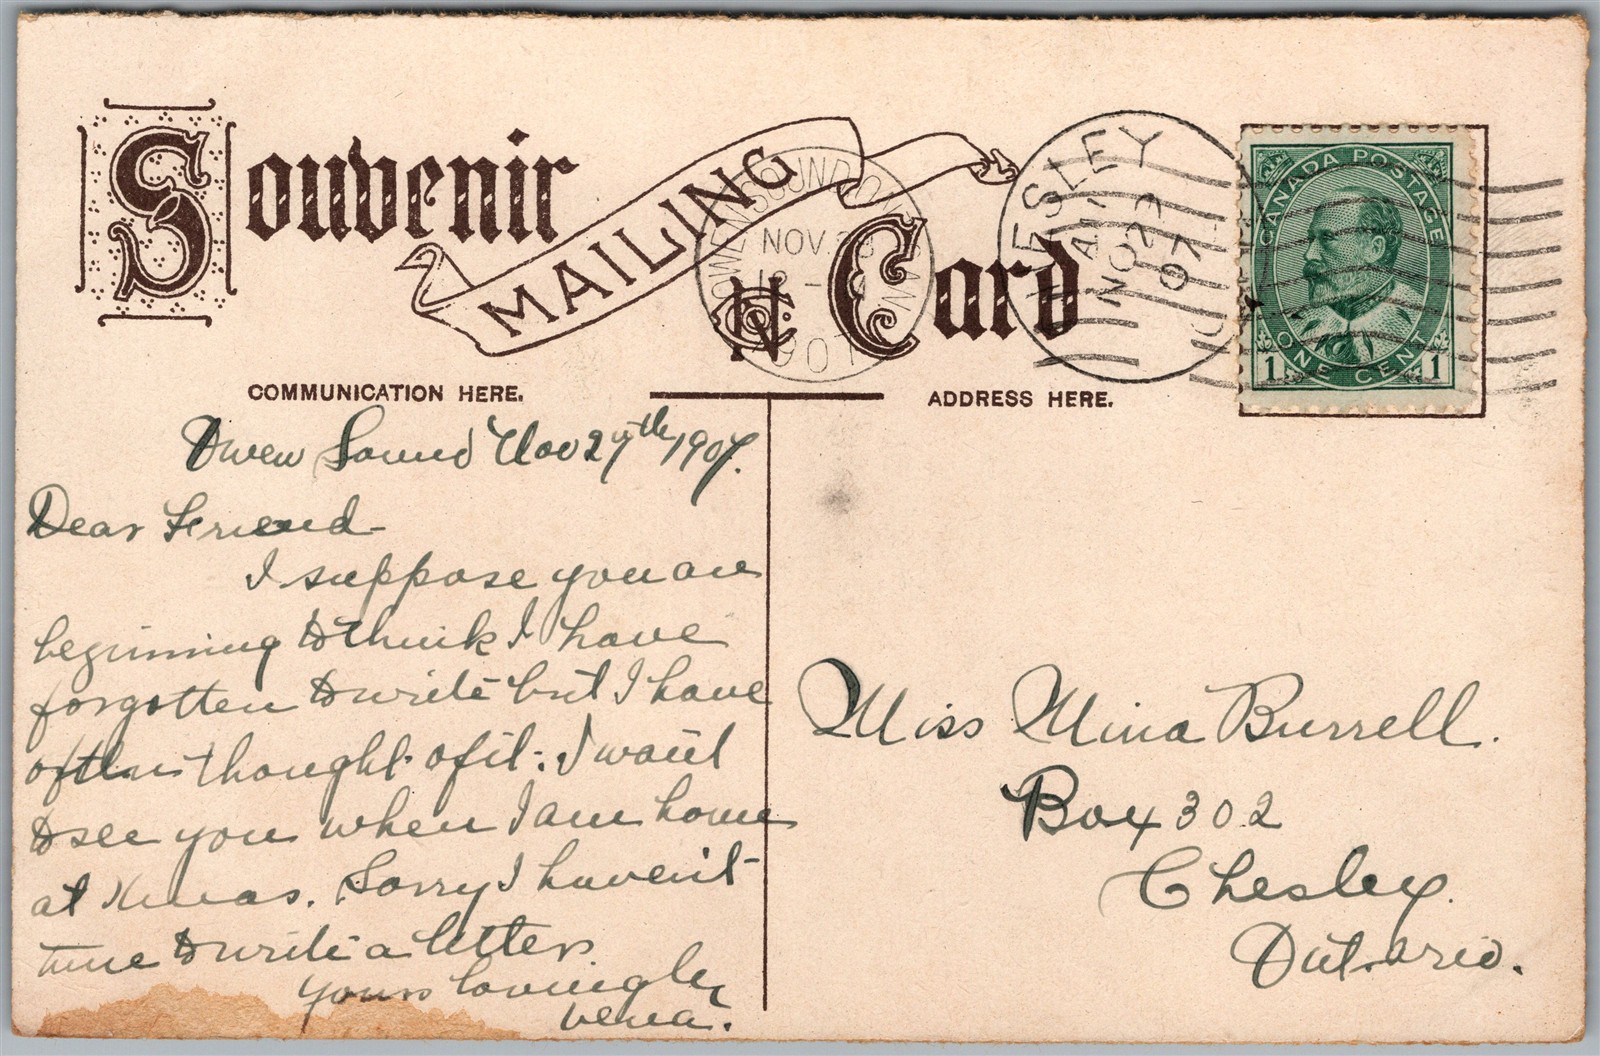 Souvenir
MAILING
Card
COMMUNICATION HERE.
ADDRESS HERE.
OWEN SOUND
NOV
1907
CHESLEY
AM
NO 29
07
CANADA POSTAGE
1 ONE CENT 1
Owen Sound Nov 27th 1907.
Dear Friend-
I suppose you are
beginning to think I have
forgotten to write but I have
often thought of it. I want
to see you when I am home
at Xmas. Sorry I haven't
time to write a letter.
Yours lovingly
Vena.
Miss Mina Burrell.
Box 302
Chesley.
Ontario.